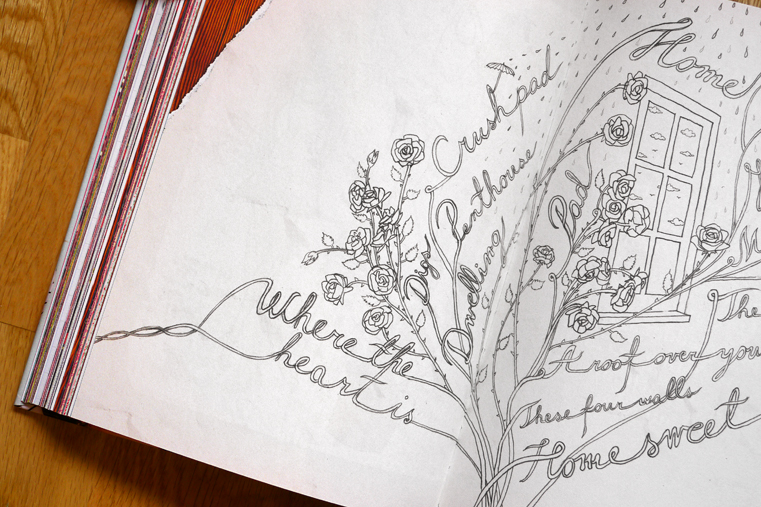 Crush pad
Penthouse
Digs
Dwelling
Where the
heart is
Home
Pad
The
A roof over you
These four walls
Home sweet